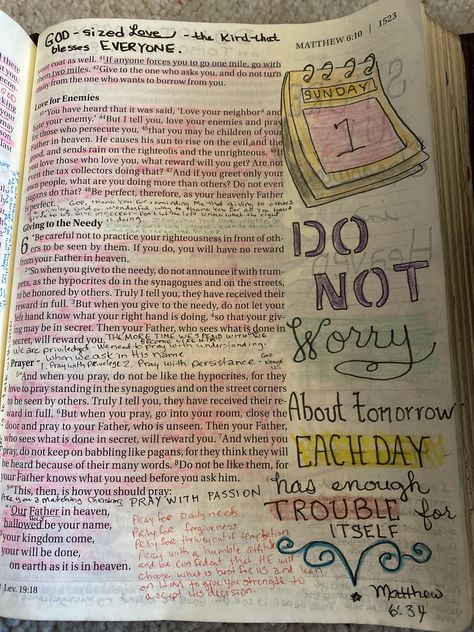 MATTHEW 6:10 | 1523
GOD-sized Love - the kind that
blesses EVERYONE.
your coat as well. 41If anyone forces you to go one mile, go with
them two miles. 42Give to the one who asks you, and do not turn
away from the one who wants to borrow from you.
Love for Enemies
43"You have heard that it was said, 'Love your neighbor a and
hate your enemy.' 44But I tell you, love your enemies and pray
for those who persecute you, 45that you may be children of your
Father in heaven. He causes his sun to rise on the evil and the
good, and sends rain on the righteous and the unrighteous. 46If
you love those who love you, what reward will you get? Are not
even the tax collectors doing that? 47And if you greet only your
own people, what are you doing more than others? Do not even
pagans do that? 48Be perfect, therefore, as your heavenly Father
is perfect.
God, thank you for reminding me that giving to others
Giving to the Needy
6 "Be careful not to practice your righteousness in front of oth-
ers to be seen by them. If you do, you will have no reward
from your Father in heaven.
2"So when you give to the needy, do not announce it with trum-
pets, as the hypocrites do in the synagogues and on the streets,
to be honored by others. Truly I tell you, they have received their
reward in full. 3But when you give to the needy, do not let your
left hand know what your right hand is doing, 4so that your giv-
ing may be in secret. Then your Father, who sees what is done in
secret, will reward you.
THE MORE TIME WE SPEND WITH
We are priviledged - We need to pray with understanding
when we ask in His name
Prayer - 1. Pray with privelege 2. Pray with persistance - GOD KNOWS US
5"And when you pray, do not be like the hypocrites, for they
love to pray standing in the synagogues and on the street corners
to be seen by others. Truly I tell you, they have received their re-
ward in full. 6But when you pray, go into your room, close the
door and pray to your Father, who is unseen. Then your Father,
who sees what is done in secret, will reward you. 7And when you
pray, do not keep on babbling like pagans, for they think they will
be heard because of their many words. 8Do not be like them, for
your Father knows what you need before you ask him.
9"This, then, is how you should pray:
PRAY WITH PASSION
"'Our Father in heaven,
hallowed be your name,
10your kingdom come,
your will be done,
on earth as it is in heaven.
Pray for Daily needs
Pray for forgiveness
Pray for the removal of temptation
Pray with a humble attitude
and be confident that HE will
choose what is best for us and lean
on Him to give you strength to
accept His decision.
a 43 Lev. 19:18
SUNDAY
1
DO
NOT
Worry
About tomorrow
EACH DAY
has enough
TROUBLE for
ITSELF
Matthew
6:34